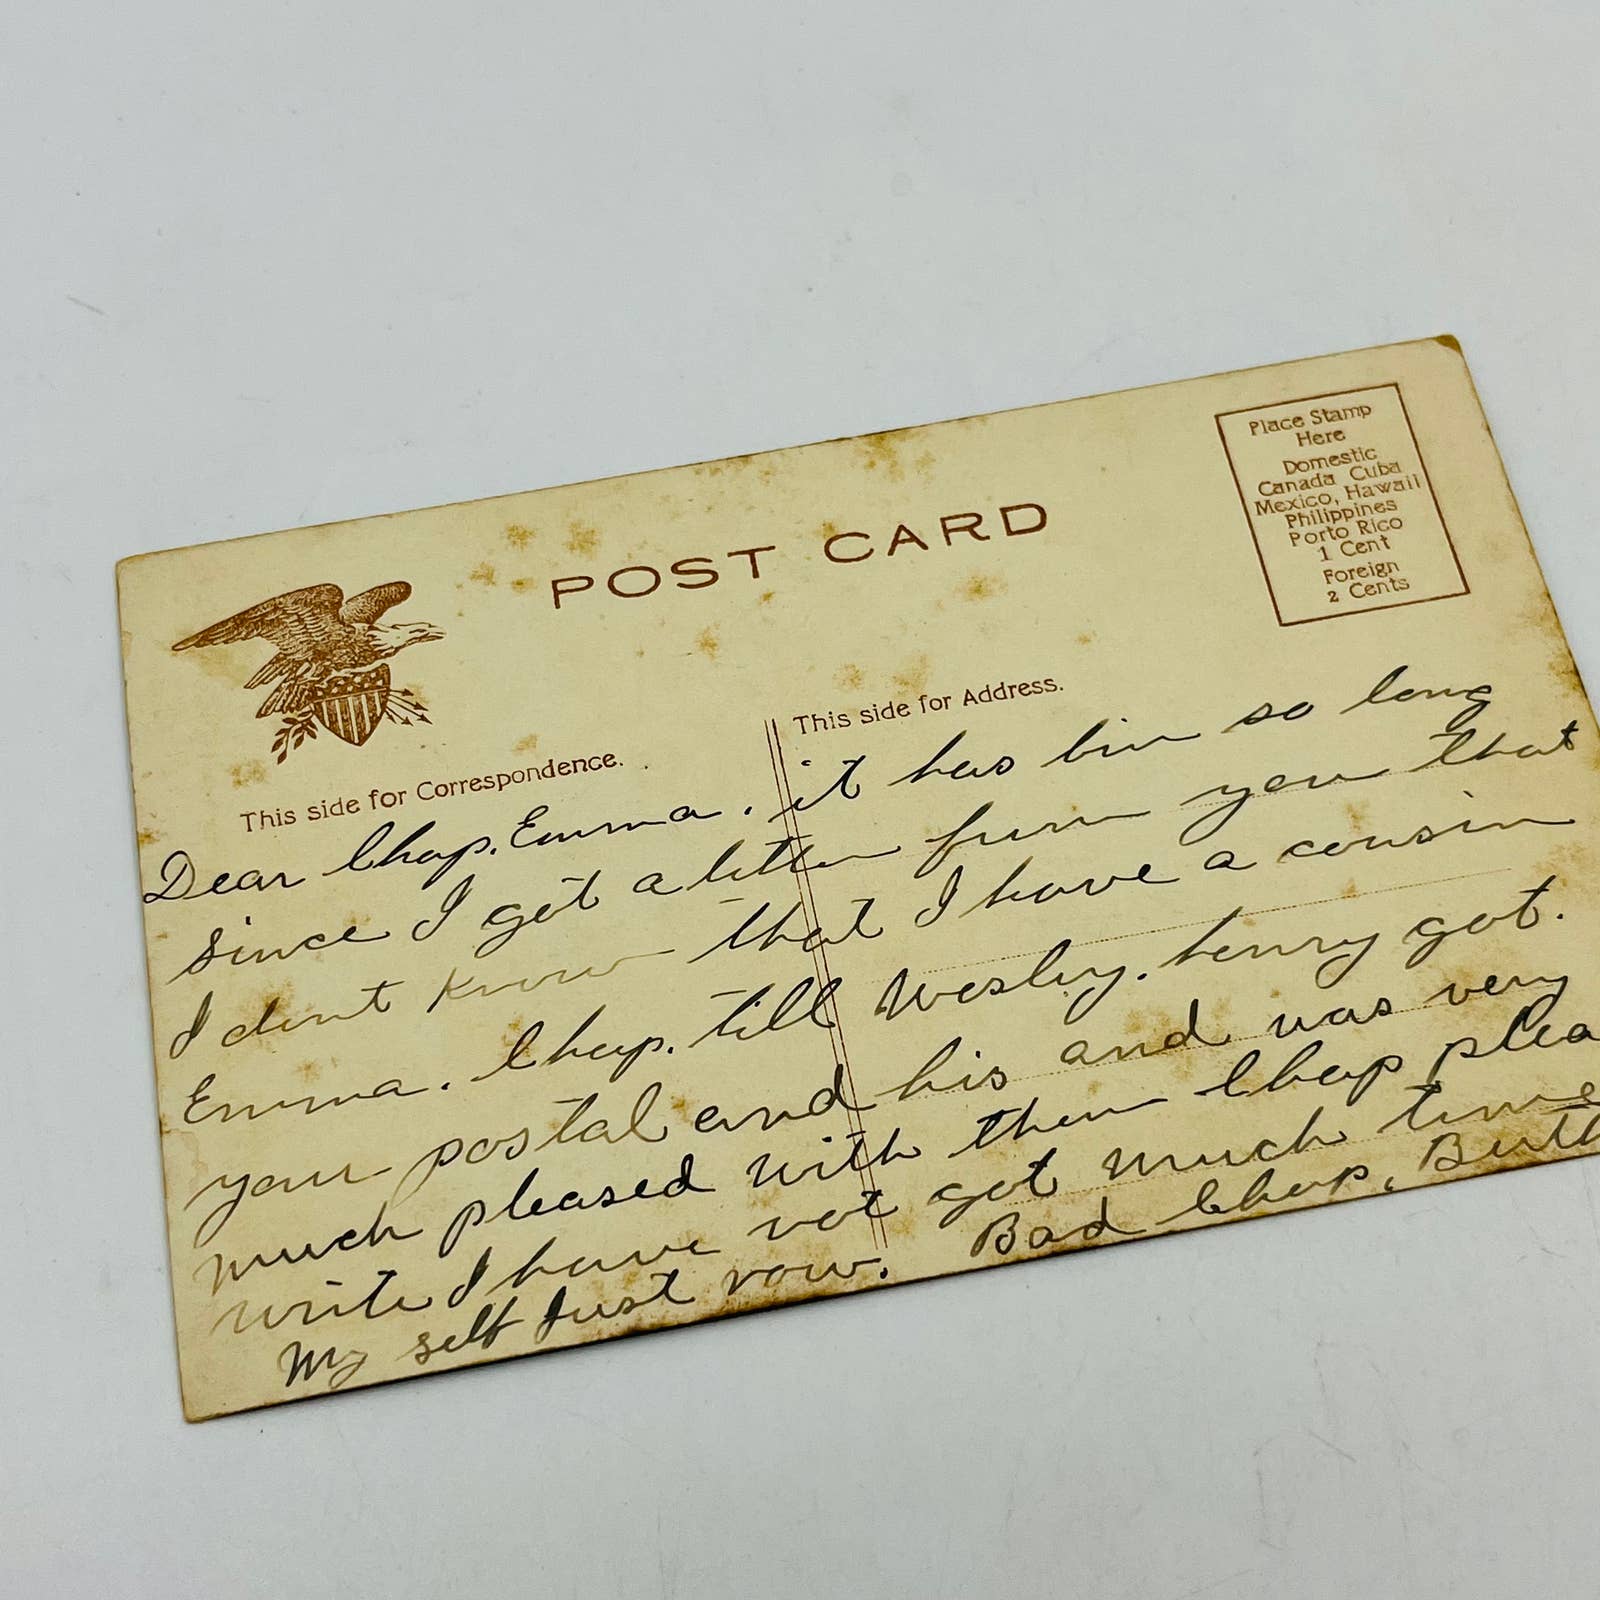 POST CARD
Place Stamp
Here
Domestic
Canada Cuba
Mexico, Hawaii
Philippines
Porto Rico
1 Cent
Foreign
2 Cents
This side for Correspondence.
This side for Address.
Dear Chap. Emma. it has bin so long
since I got a letter from you that
I dont know that I have a cousin
Emma. Chap. till Wesley. henry got.
your postal and his and was very
much pleased with them Chap plea
write I have not got much time
My self Just now. Bad Chap.